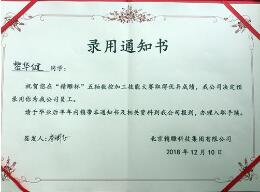 录用通知书
黎华健 同学:
祝贺您在“精雕杯”五轴数控加工技能大赛取得优异成绩，我公司决定招
录用你为我公司员工。
请于毕业后半年内携带本通知书及相关资料到我公司报到，办理入职手续。
签发人:
北京精雕科技集团有限公司
2018 年 12 月 10 日